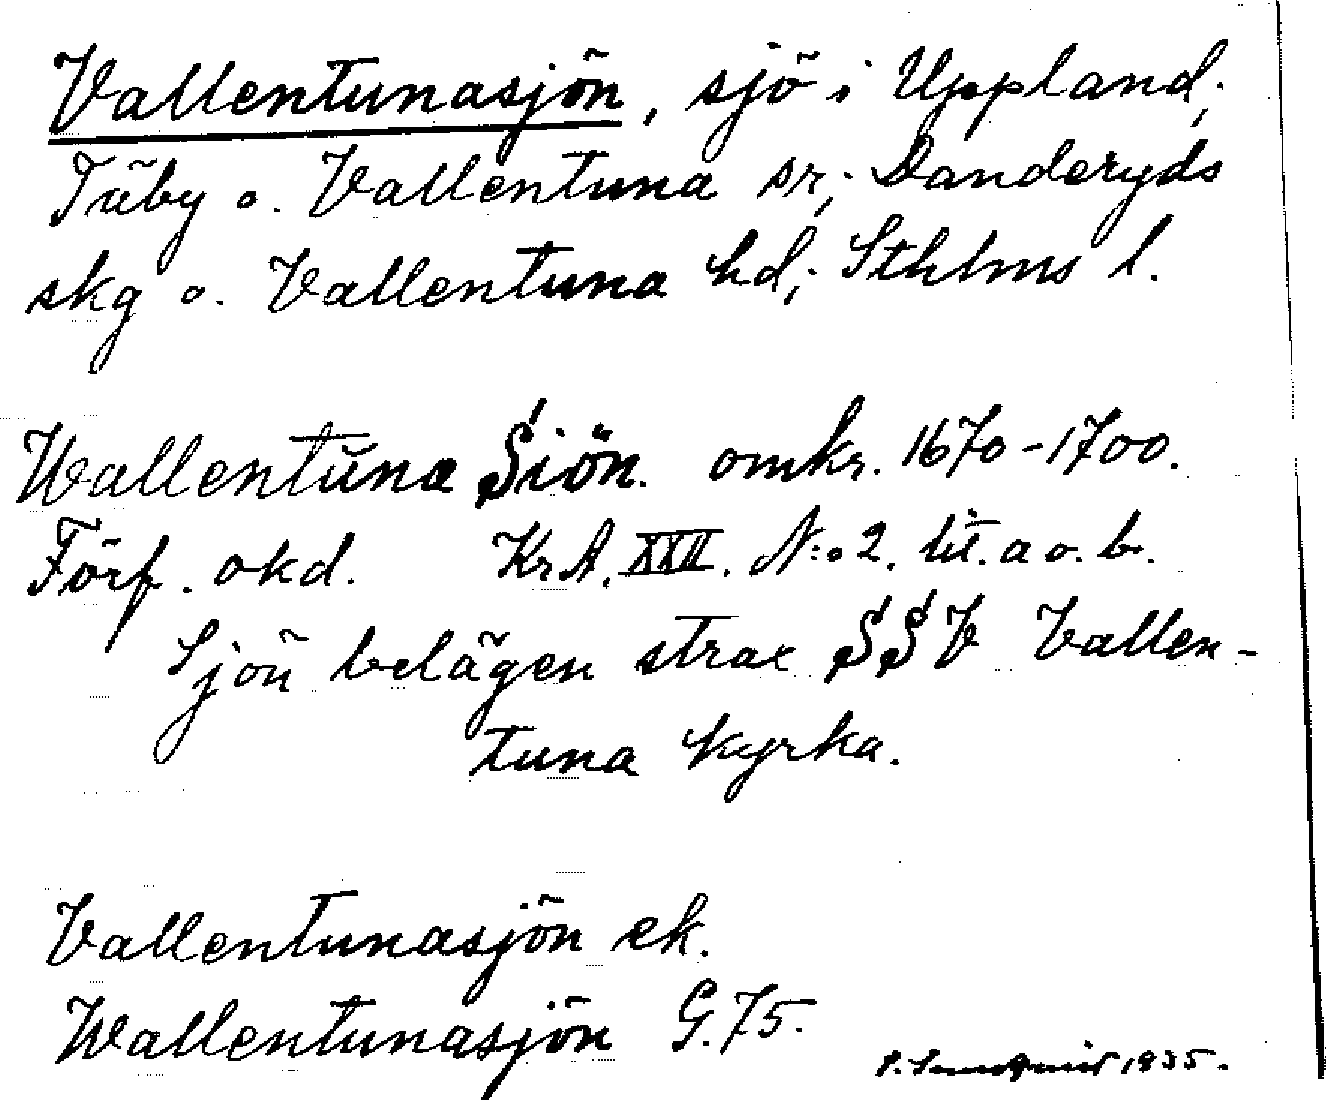 Vallentunasjön, sjö i Uppland;
Täby o. Vallentuna sr; Danderyds
skg o. Vallentuna hd; Sthlms l.
Wallentŭna Siön. omkr. 1670-1700.
Förf. okd. KrA. XXII. N:o 2. lit. a o. b.
Sjön belägen strax SSV Vallen-
tuna kyrka.
Vallentunasjön ek.
Wallentunasjön G. 75.
1935.